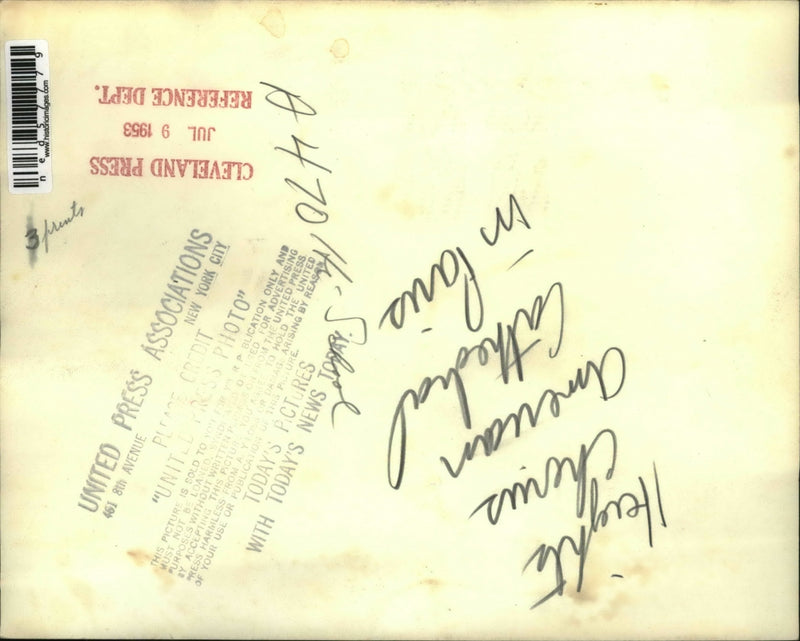 CLEVELAND PRESS
JUL 9 1953
REFERENCE DEPT.
ned57779
www.historicimages.com
3 prints
UNITED PRESS ASSOCIATIONS
461 8th AVENUE NEW YORK CITY
PLEASE CREDIT
"UNITED PRESS PHOTO"
THIS PICTURE IS SOLD TO YOU FOR YOUR PUBLICATION ONLY AND
MUST NOT BE LOANED, SYNDICATED OR USED FOR ADVERTISING
PURPOSES WITHOUT WRITTEN PERMISSION FROM THE UNITED PRESS
BY ACCEPTING THIS PICTURE YOU AGREE TO HOLD THE UNITED
PRESS HARMLESS FROM ANY LOSS OR DAMAGE ARISING BY REASON
OF YOUR USE OR PUBLICATION OF THIS PICTURE.
WITH TODAY'S PICTURES
TODAY'S NEWS TODAY.
Heights
Chorus
American
Cathedral
in Paris